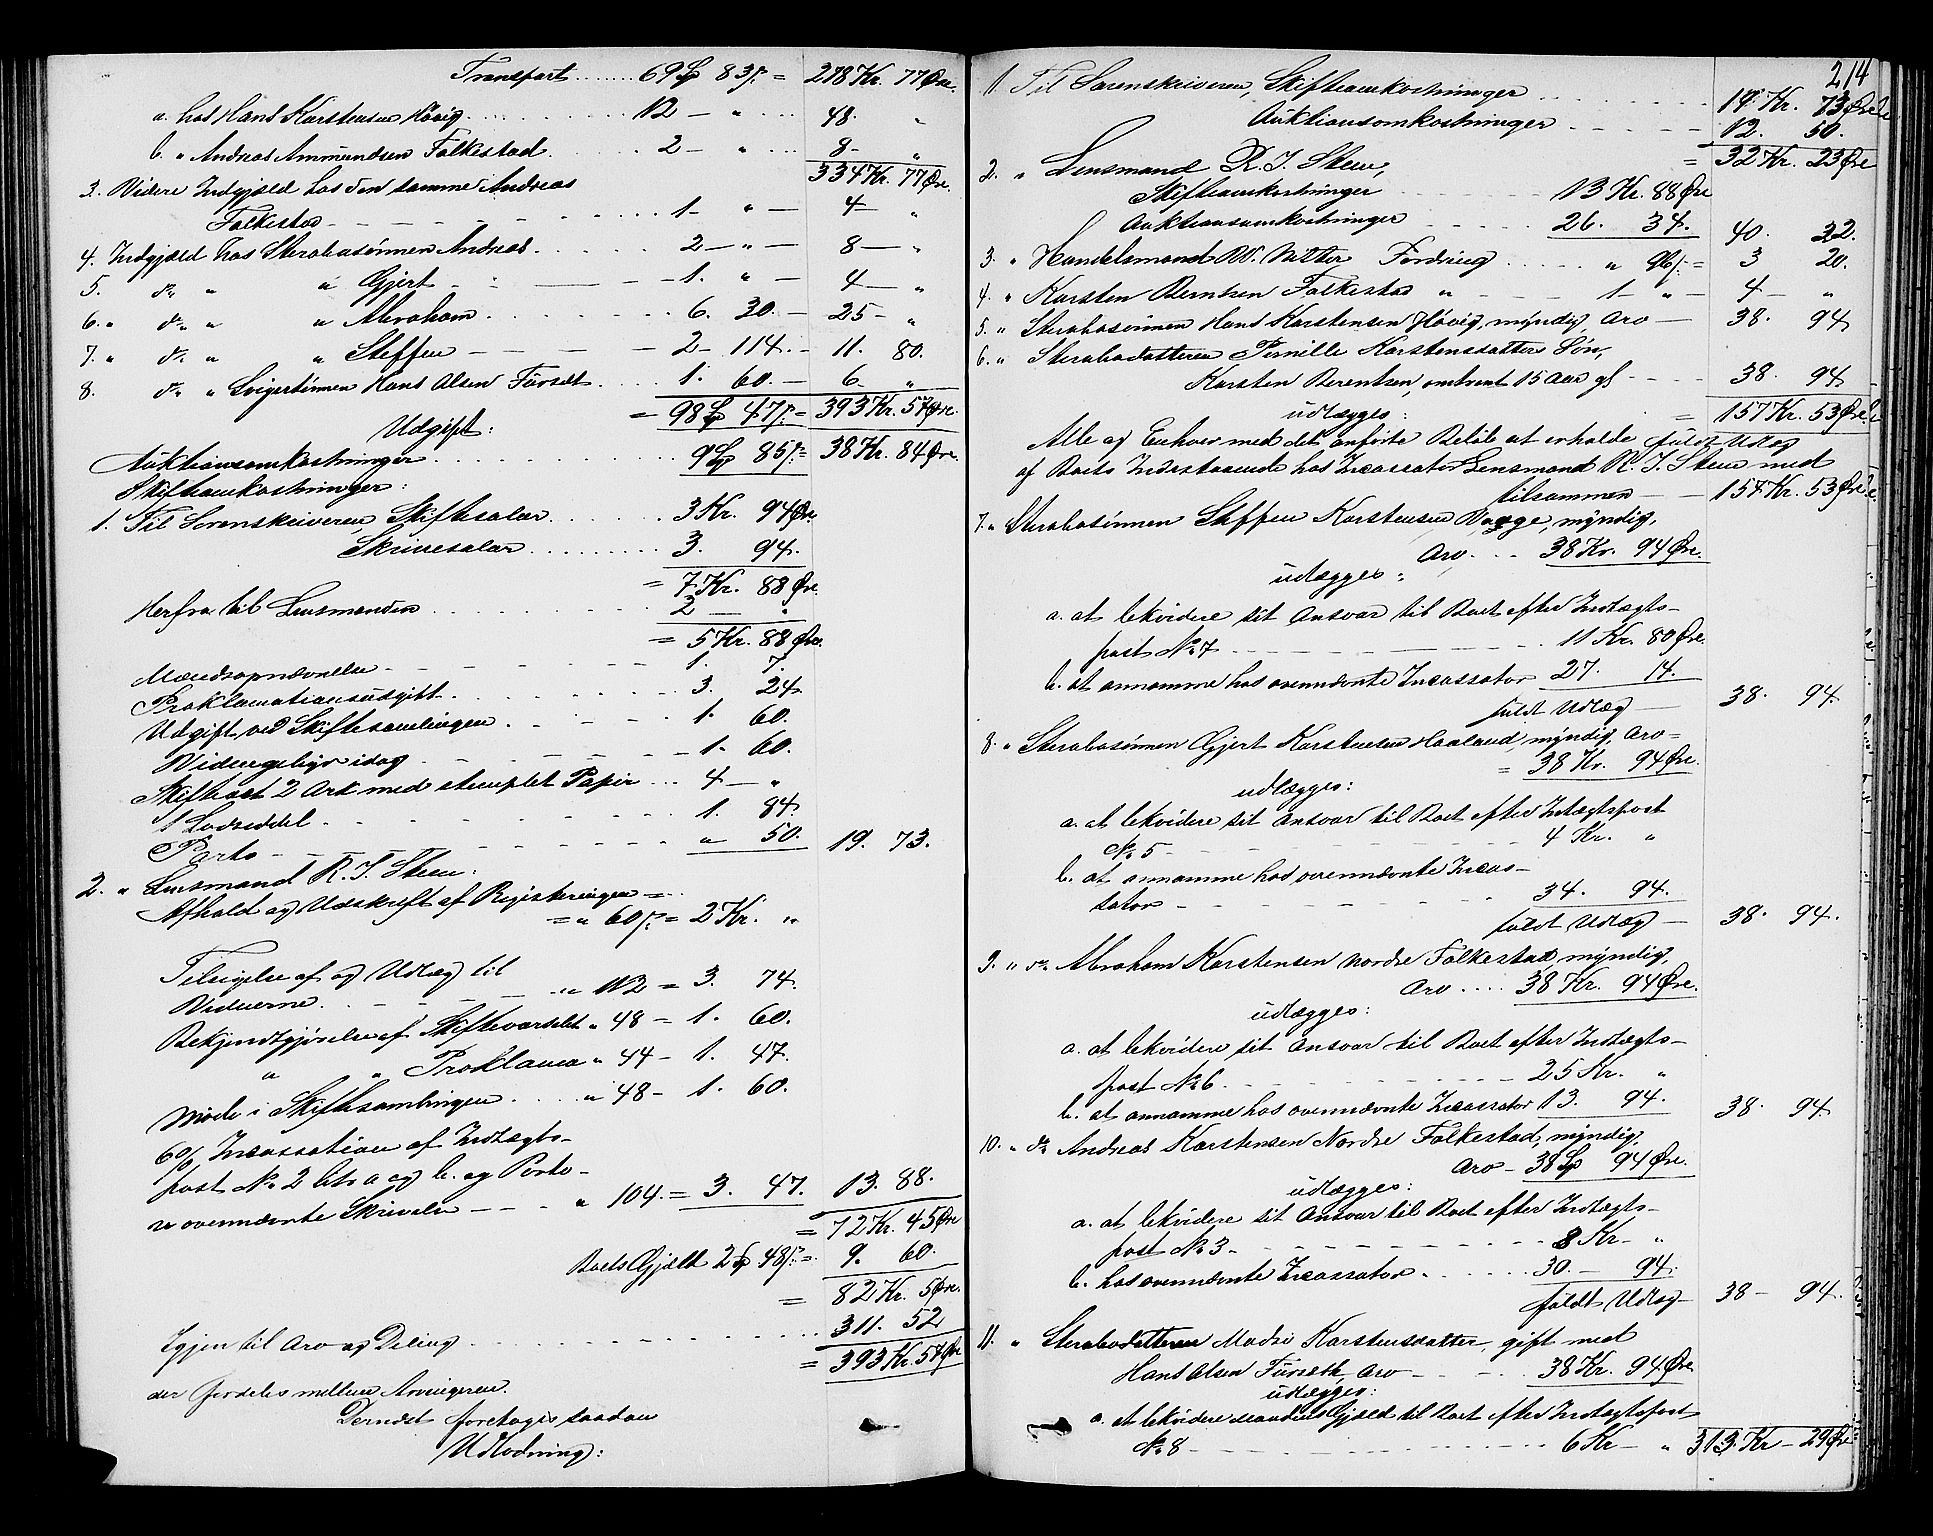 Transport ........ 69 Sp 83 s. = 278 Kr. 77 Øre.
a. hos Hans Karstensen Høvig ........ 12 — " ... 48. "
b. " Andreas Ammundsen Folkestad ..... 2 — " ... 8 — "
334 Kr. 77 Øre.
3. Videre Indgjæld hos den samme Andreas
Folkestad — — — — ..... 1 — " — 4 — "
4. Indgjæld hos Sterbosønnen Andreas ..... 2 — " — 8 — "
5. do " " Gjert ..... 1. " — 4 — "
6. " do " " Abraham ........ 6. 30. — 25 — "
7. " do " " Steffen — — — — 2 — 114. — 11. 80.
8. do " Svigersønnen Hans Olsen Furseth .... 1. 60. — 6. "
= 98 Sp 47 s. = 393 Kr. 57 Øre.
Udgift:
Auktionsomkostninger ........ 9 Sp 85 s. = 38 Kr. 84 Øre.
Skifteomkostninger:
1. Til Sorenskriveren, Skiftesalær ....... 3 Kr. 94 Øre.
Skrivesalær ........ 3. 94.
= 7 Kr. 88 Øre.
Herfra til Lensmanden ........ 2 — "
= 5 Kr. 88 Øre.
Mændsopnævnelse — — — — 1. 7.
Proklamationsudgift ........ 3. 24
Udgift ved Skiftesamlingen ...... 1. 60.
Vidnegebyr idag — — — — 1. 60.
Skifteact 2 Ark med stemplet Papir ... 4 — "
1 Lodseddel — — — — 1. 84.
Porto — — — — " 50. 19. 73.
2. " Lensmand R. T. Steen:
Afhold og Udskrift af Registeringen — ..
= " 60 s. = 2 Kr. "
Tilsigelse af og Udlæg til
Vidnerne — — — " 112 = 3. 74.
Bekjendtgjørelse af Skiftevarselet " 48 — 1. 60.
" " Proklama " 44 — 1. 47.
Møde i Skiftesamlingen .... " 48 — 1. 60.
6 % Incassation af Indtægts-
post No 2 litr a og b. og Porto —
ovennævnte Skrivelse — — — " 104. = 3. 47. 13. 88.
= 72 Kr. 45 Øre
Boets Gjæld 2 Sp 48 s. = 9. 60.
= 82 Kr. 5 Øre.
Igjen til Arv og Deling ........ 311. 52
= 393 Kr. 57 Øre
der fordeles mellem Arvingerne.
Dernæst foretoges saadan
Udlodning:
214
1 Til Sorenskriveren, Skifteomkostninger ........ 19. Kr. 73 Øre
Auktionsomkostninger ..... 12. 50.
= 32 Kr. 23 Øre
2. " Lensmand R. T. Steen,
Skifteomkostninger ........ 13 Kr. 88 Øre
Auktionsomkostninger ..... 26. 34. 40. 22.
3. " Handelsmand W. Witter Fordring ..... " 96 s. = 3 20.
4. " Karsten Berntsen Folkestad " — — — 1 — " — 4 — "
5. " Sterbosønnen Hans Karstensen Høvig, myndig, Arv — 38. 94
6. " Sterbodatteren Pernille Karstensdatters Søn,
Karsten Berentsen, omtrent 15 Aar gl — — — 38. 94
udlægges: = 157 Kr. 53 Øre
Alle og Enhver med det anførte Beløb at erholde fuldt Udlæg
af Boets Indestaaende hos Incassator Lensmand R. T. Steen med
tilsammen — — 157 Kr. 53 Øre.
7. " Sterbosønnen Steffen Karstensen Vogge, myndig,
Arv. ... 38 Kr. 94 Øre.
udlægges:
a. at likvidere sit Ansvar til Boet efter Indtægts-
post No 7 — — — — 11 Kr. 80 Øre.
b. at annamme hos ovennævnte Incassator 27. 14.
fuldt Udlæg — 38. 94.
8. " Sterbosønnen Gjert Karstensen Haaland, myndig, Arv =
= 38 Kr. 94 Øre.
udlægges:
a. at likvidere sit Ansvar til Boet efter Indtægtspost
No 5 — — — — 4 Kr. "
b. at annamme hos ovennævnte Incas-
sator — — — — 34. 94.
fuldt Udlæg — 38. 94.
9. " do Abraham Karstensen Nordre Folkestad myndig,
Arv .... 38 Kr. 94 Øre.
udlægges:
a. at likvidere sit Ansvar til Boet efter Indtægts-
post No 6 — — — — 25 Kr. "
b. at annamme hos ovennævnte Incassator 13. 94. 38. 94.
10. " do Andreas Karstensen Nordre Folkestad, myndig,
Arv — 38 Sp 94 Øre.
udlægges:
a. at likvidere sit Ansvar til Boet efter Indtægts-
post No 3 — — — — 8 Kr. — "
b. hos ovennævnte Incassator ..... 30. — 94.
fuldt Udlæg — 38 — 94.
11. " Sterbodatteren Madsi Karstensdatter, gift med
Hans Olsen Furseth, Arv — — — 38 Kr. 94 Øre
udlægges:
a. at likvidere Mandens Gjæld til Boet efter Indtægtspost
No 8 — — — — 6 Kr — " 313. Kr — 29 Øre